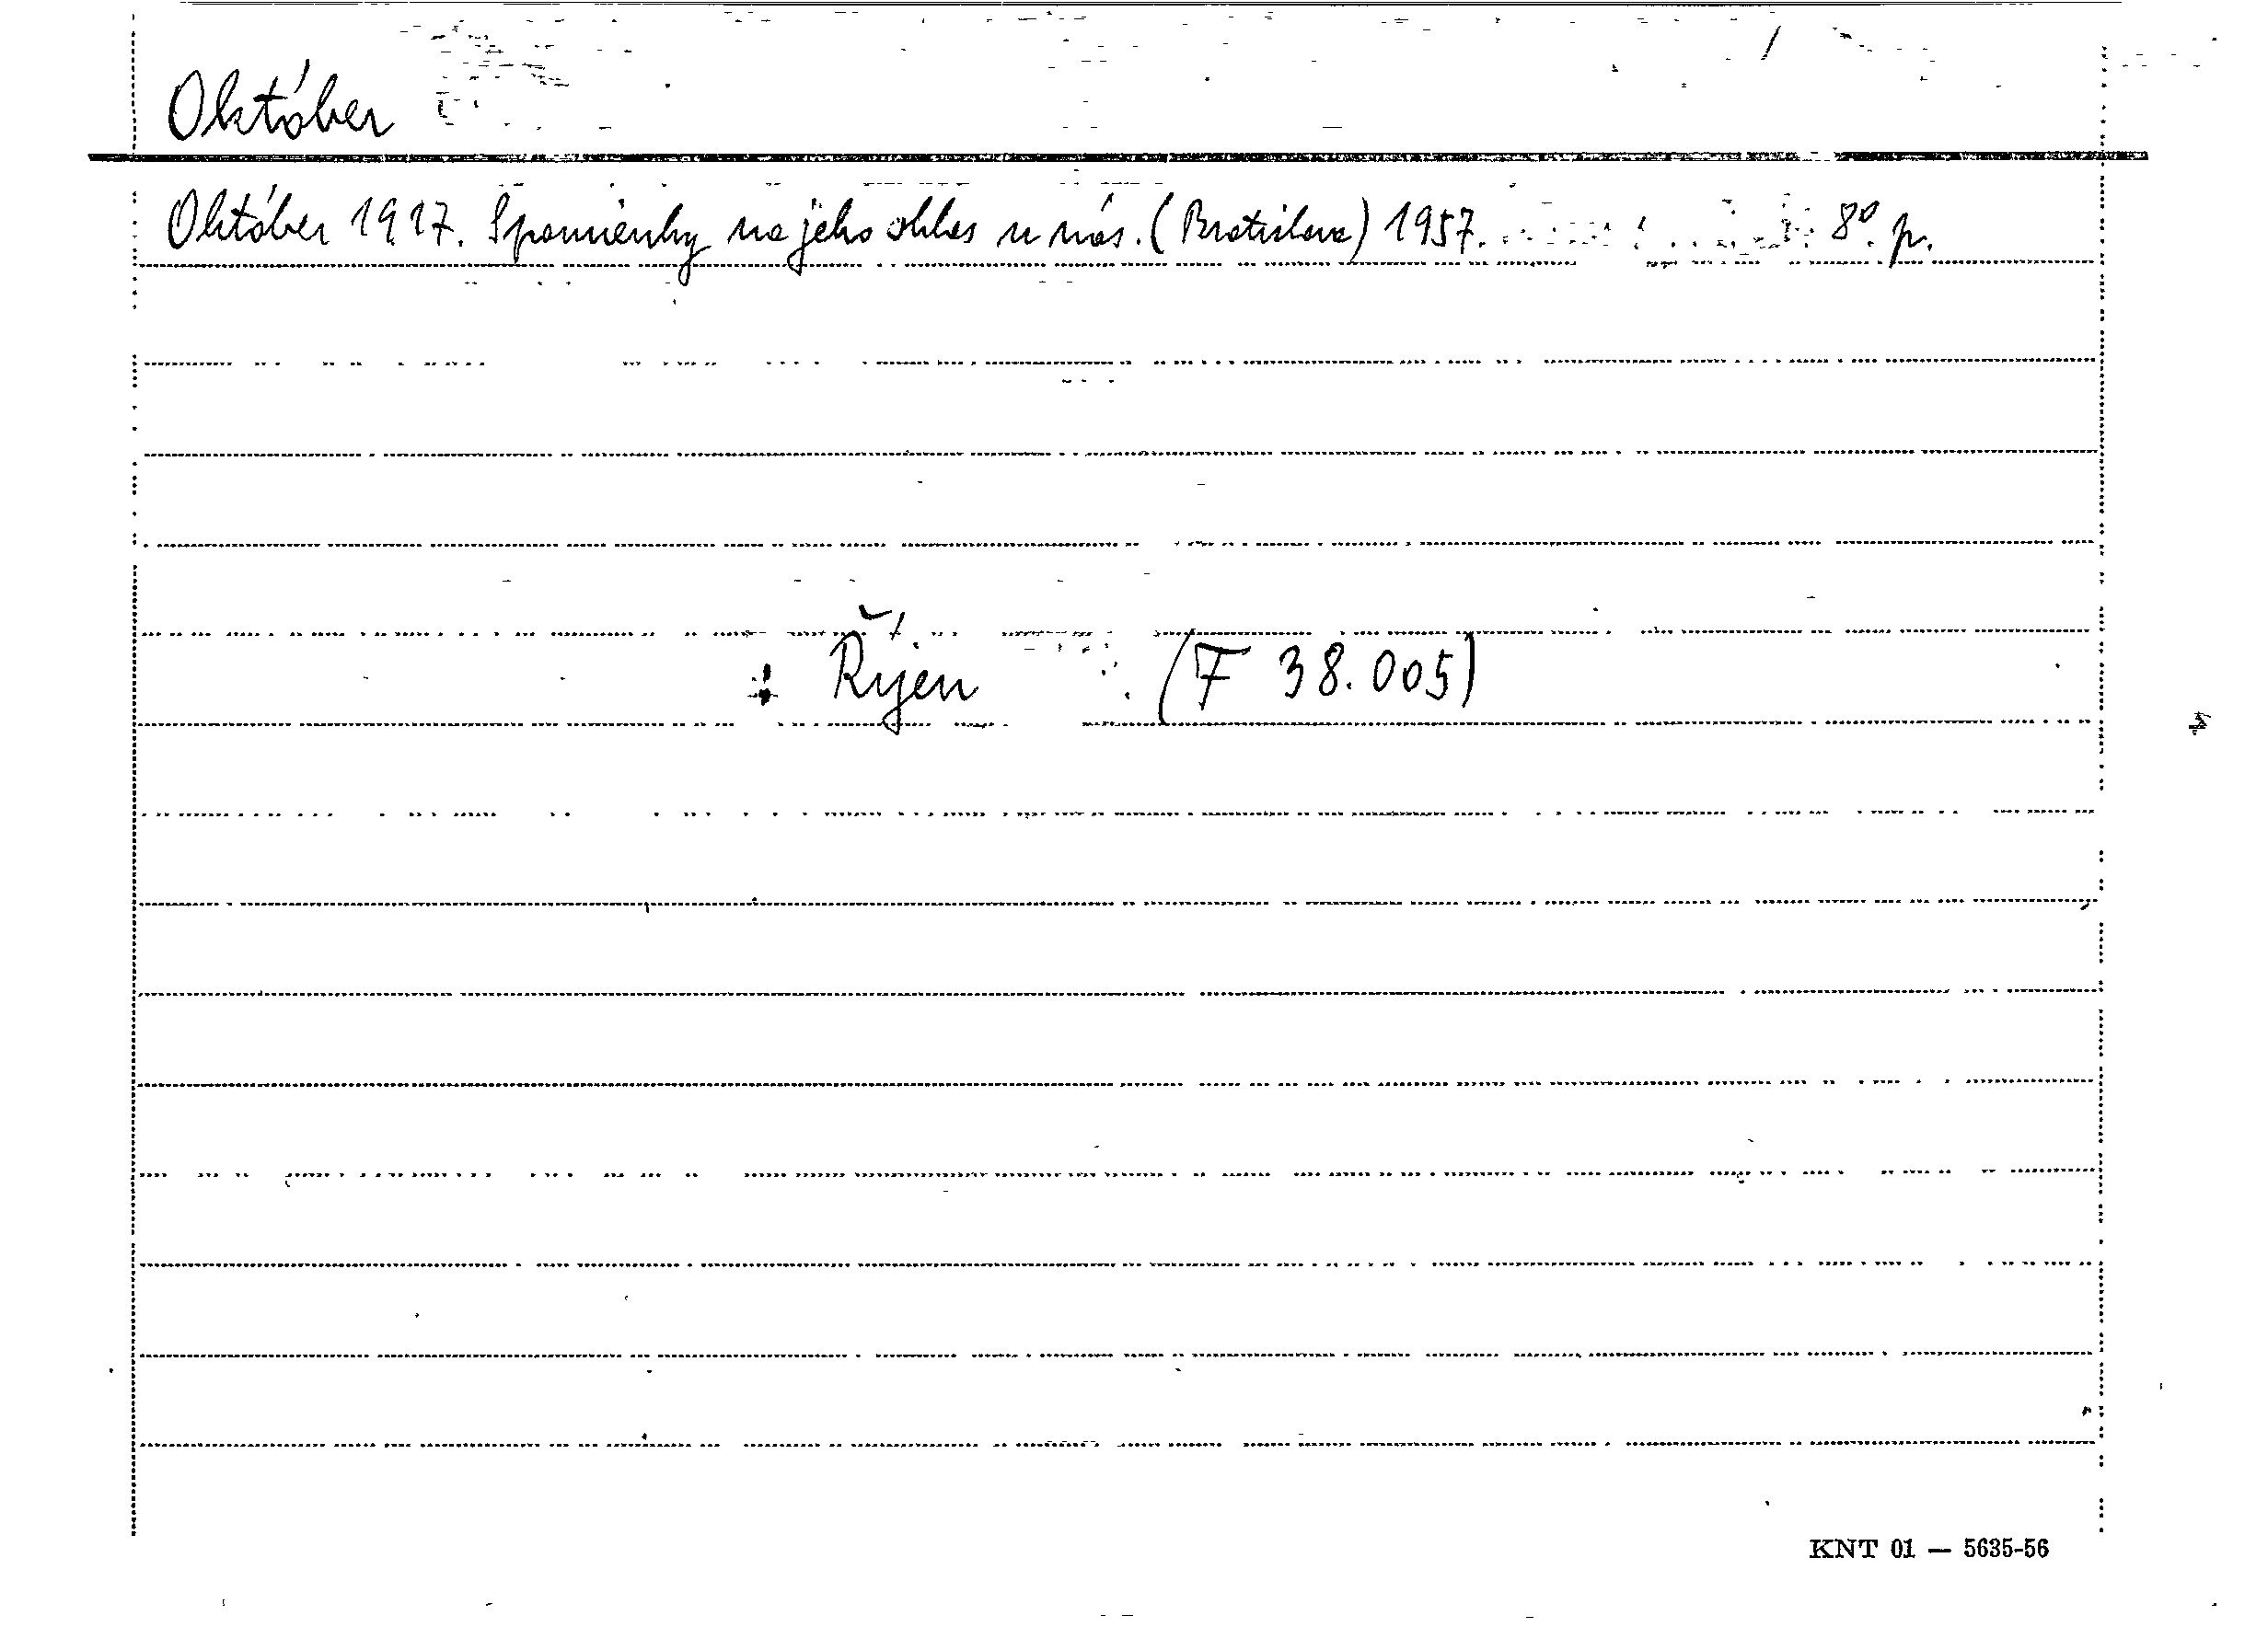 Október
Október 1917. Spomienky na jeho ohlas u nás. (Bratislava) 1957. 8° p.
: Říjen (F 38.005)
KNT 01 — 5635-56